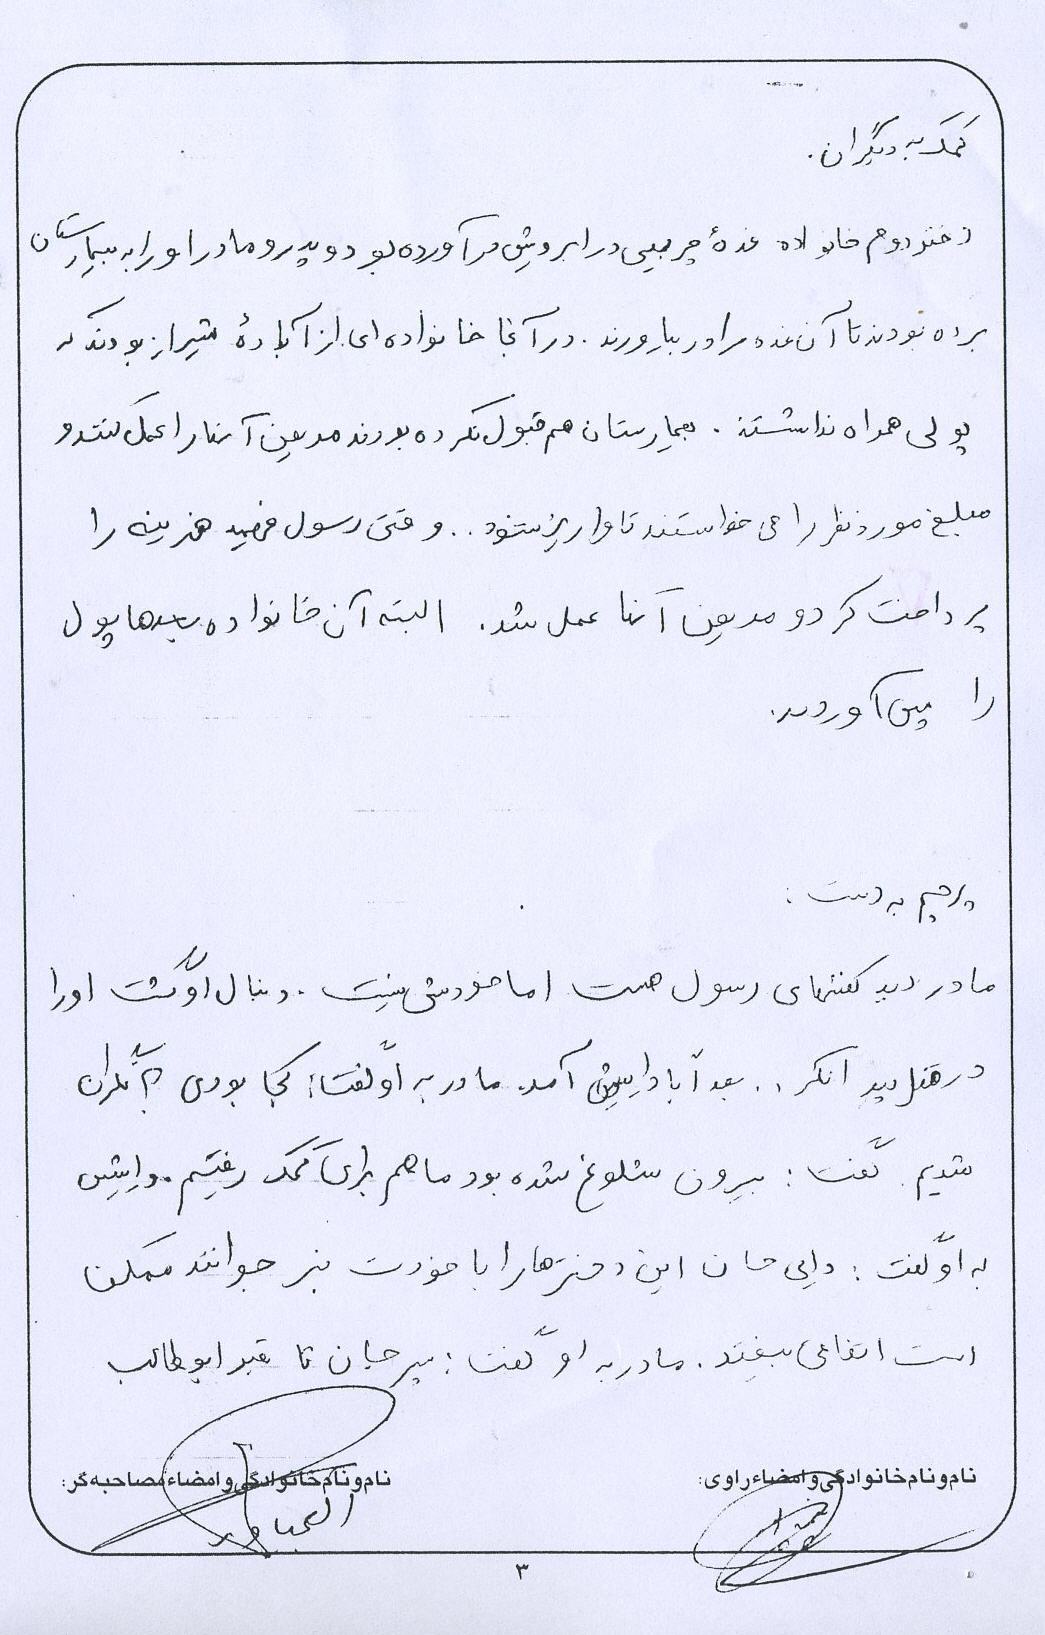 کمک به دیگران.
دختر دوم خانواده غدهٔ چربیی در ابرویش در آورده بود و پدر و مادر او را به بیمارستان
برده بودند تا آن غده را در بیاورند. در آنجا خانواده ای از آبادهٔ شیراز بودند که
پولی همراه نداشتند. بیمارستان هم قبول نکرده بودند مریض آنها را عمل کنند و
مبلغ مورد نظر را می خواستند تا واریز شود.. وقتی رسول فهمید هزینه را
پرداخت کرد و مریض آنها عمل شد. البته آن خانواده بعدها پول
را پس آوردند.
پرچم به دست:
مادر دید کفشهای رسول هست اما خودش نیست. دنبال او گشت او را
در هتل پیدا نکرد.. بعد آمد. مادر به او گفت: کجا بودی نگران
شدیم. گفت: بیرون شلوغ شده بود ما هم برای کمک رفتیم.
به او گفت: دایی جان این دخترها را با خودت نبر جوانند ممکن
است اتفاقی بیفتد. مادر به او گفت: پسر جان تا قبر ابوطالب
نام و نام خانوادگی و امضاء راوی:
نام و نام خانوادگی و امضاء مصاحبه گر:
۳